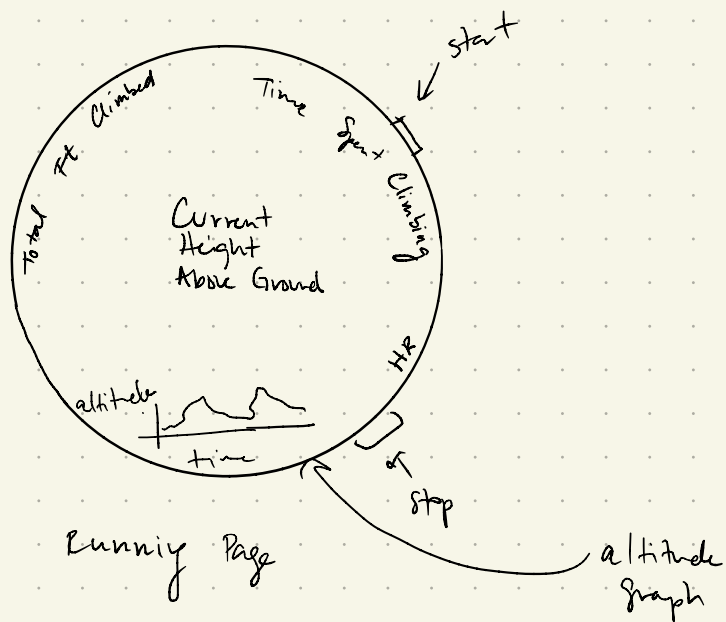 Start
Total Ft Climbed
Time Spent Climbing
Current
Height
Above Ground
HR
altitude
time
Stop
Runniy Page
altitude
graph